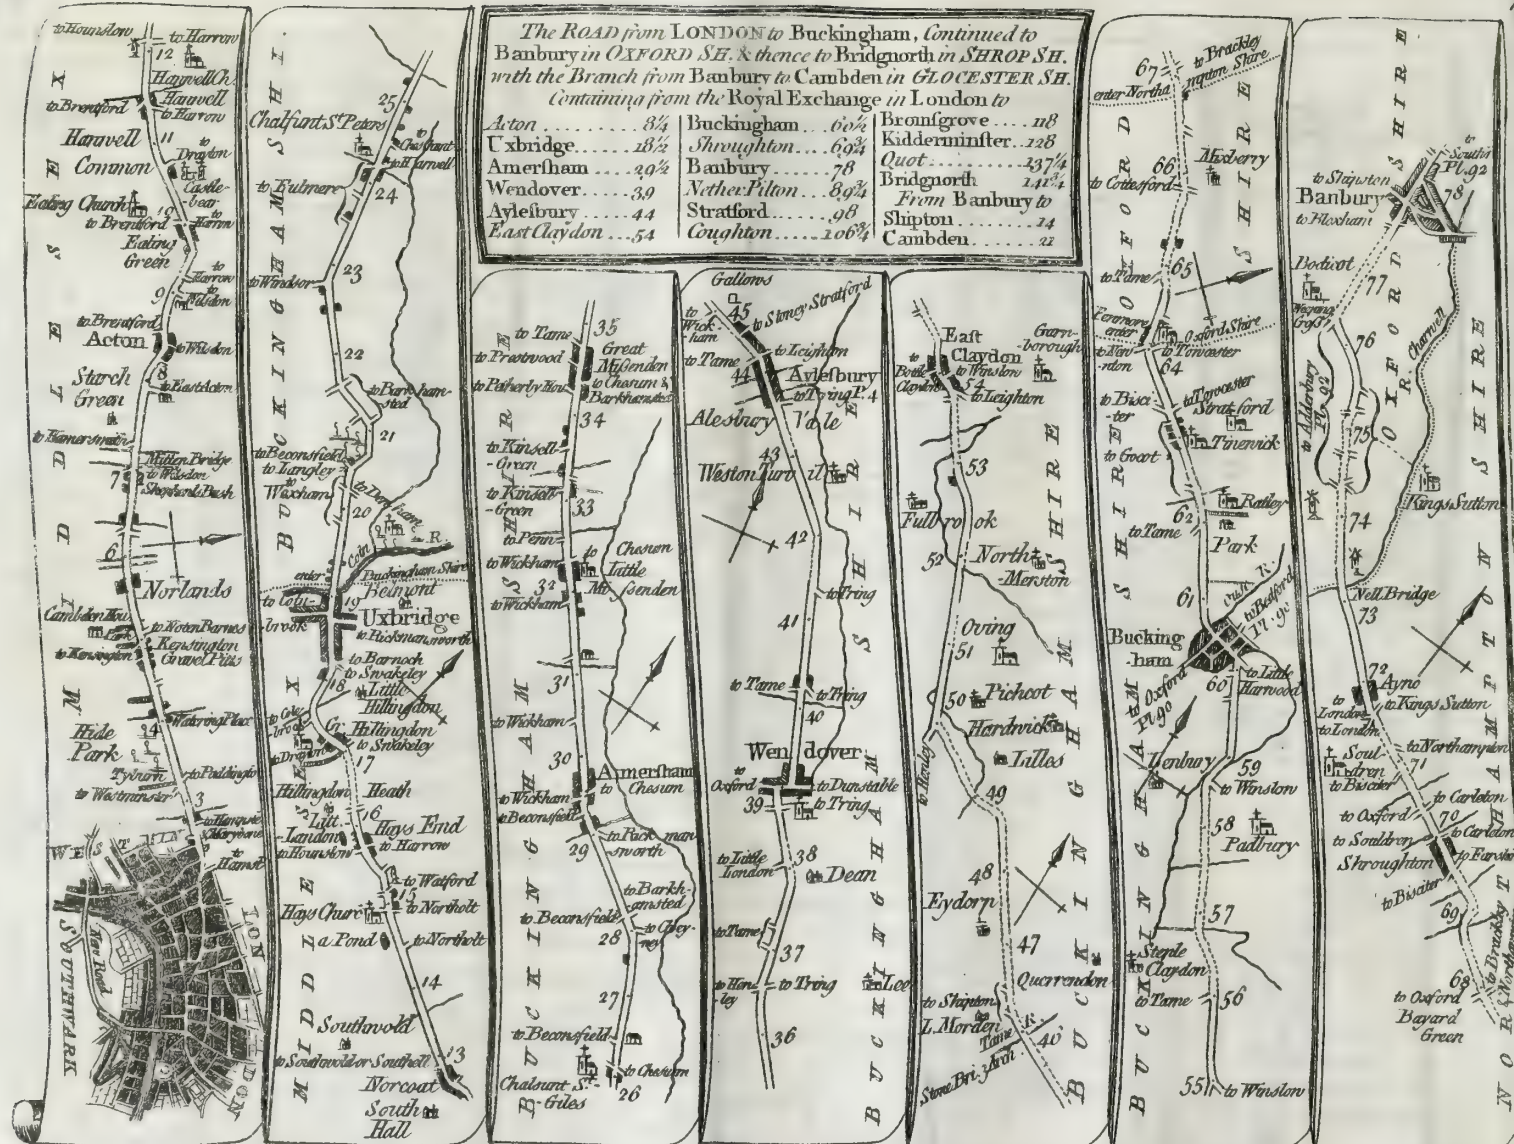 The ROAD from LONDON to Buckingham, Continued to
Banbury in OXFORD SH. & thence to Bridgnorth in SHROP SH.
with the Branch from Banbury to Cambden in GLOCESTER SH.
Containing from the Royal Exchange in London to
Acton 8¼
Uxbridge 18½
Amersham 29½
Wendover 39
Aylesbury 44
East Claydon 54
Buckingham 60½
Shroughton 69¾
Banbury 78
Nether Pilton 89¾
Stratford 98
Coughton 106¾
Bromsgrove 118
Kidderminster 128
Quot 137¼
Bridgnorth 141¾
From Banbury to
Shipton 14
Cambden 21
to Hounslow
to Harrow
12
Hanwell Ch.
Hanwell
to Brentford
to Harrow
11
Hanwell
Common
to
Drayton
Castle-
bear
Ealing Church
10
to Harrow
to Brentford
Ealing
Green
to
Harrow
to
Wilsdon
9
to Brentford
Acton
to Wilsdon
Starch
Green
8
to East Acton
to Hamersmith
Millen Bridge
to Wilsdon
7
Shepherds Bush
6
Norlands
Cambden Hou
Park
to Noten Barnes
Kensington
Gravel Pitts
to Kensington
Watering Place
4
Hide
Park
Tyburn
to Padington
to Westminster
3
to Hampste
Marybone
to
Hamst
WESTMIN
LONDON
SOUTHWARK
Kew Road
MIDDLESEX
BUCKINGHAMSHI.
25
Chalfunt St. Peters
to
Cheshunt
to Harwell
24
to Fulmere
23
to Windsor
22
to Barkham-
sted
21
to Beconsfield
to Langley
to
Wexham
to Denham
20
Coln R.
enter
Buckingham Shire
Belmont
to Coln-
brook
19
Uxbridge
to Rickmansworth
to Barnoch
to Swakeley
to Little
Hillingdon
18
to Cole-
brook
Hillingdon
to Swakeley
to Drayton
17
Hillingdon
Heath
16
Litt.
London
Hays End
to Hounslow
to Harrow
to Watford
15
to Northolt
Hays Churc
a Pond
to Northolt
14
Southwold
to Southwold or Southell
13
Norcoat
South
Hall
MIDDLESEX
35
to Tame
to Prestwood
Great
Missenden
to Petherby Hou
to Chesum &
Barkhamsted
34
to Kinsell
-Green
to Kinsell
-Green
33
to Penn
to Wickham
to
Chesum
Little
Missenden
32
to Wickham
31
to Wickham
30
Amersham
to
Chesum
to Wickham
to Beconsfield
29
to Rick man
sworth
to Barkh-
amsted
to Beconsfield
28
to Chey-
ney
27
to Beconsfield
to Chesum
Chalsunt St.
-Giles
26
BUCKINGHAM SHIRE
Gallows
45
to Stoney Stratford
to
Wick-
ham
to Tame
to Leigham
44
Aylesbury
to Tring P. 4
Alesbury Vale
43
Weston Turvil
42
to Tring
41
to Tame
to Tring
40
Wendover
to
Oxford
to Dunstable
to Tring
39
38
to Little
London
Dean
to Tame
37
to Hen-
ley
to Tring
Lee
36
BUCKINGHAM SHIRE
East
Claydon
to Winslow
Garn-
borough
to
Botle
Claydon
54
to Leighton
53
Fulbrook
52
North
-Merston
Oving
51
50
Pichcot
Hardwick
Lilles
49
48
Eydorn
47
Querrendon
to Shipton
L. Morden
Tame R.
46
Stone Bri. 3 Arch
BUCKINGHAM SHIRE
67
to Brackley
enter Northampton Shire
66
Mixberry
to Cottesford
to Tame
65
Fenmore
enter
Oxford Shire
to New-
nton
to Torcester
64
to Bisci-
ter
to Torcester
Stratford
Tinewick
to Gocot
Radley
62
to Tame
Park
61
Ouse R.
to Bedford
Pl. 90
Bucking-
-ham
to Oxford
Pl. 90
60
to Little
Harwood
Lenbury
59
to Winslow
58
Padbury
57
Steple
Claydon
to Tame
56
55
to Winslow
OXFORD SHIRE
BUCKINGHAM SHIRE
to
Southm
Pl. 92
78
to Shipston
Banbury
to Bloxham
Bodicot
77
Weeping
Cross
76
R. Charwell
to Adderbury
Pl. 92
75
Kings Sutton
74
Nell Bridge
73
72
Ayno
to Kings Sutton
to
London
to London
to Northampton
71
Soul-
dren
to Bisciter
to Carleton
to Oxford
70
to Carleton
to Souldren
Shroughton
to Bisciter
69
to Brackley
68
to Oxford
Bayard
Green
OXFORD SHIRE
NORTHAMPTON SHIRE